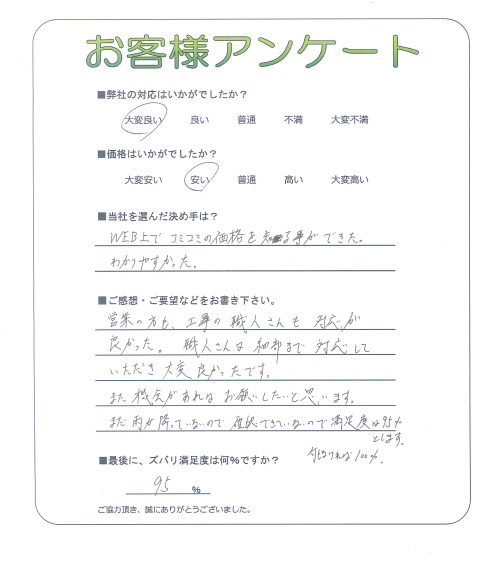 お客様アンケート
■弊社の対応はいかがでしたか？
大変良い 良い 普通 不満 大変不満
■価格はいかがでしたか？
大変安い 安い 普通 高い 大変高い
■当社を選んだ決め手は？
WEB上でコミコミの価格を知る事ができた。
わかりやすかった。
■ご感想・ご要望などをお書き下さい。
営業の方も、工事の職人さんも 対応が
良かった。 職人さんは細部まで対応して
いただき 大変良かったです。
また機会があれば お願いしたいと思います。
まだ雨が降っていないので 確認できていないので満足度は95%
とします。
ければ100%。
■最後に、ズバリ満足度は何%ですか？
95 %
ご協力頂き、誠にありがとうございました。